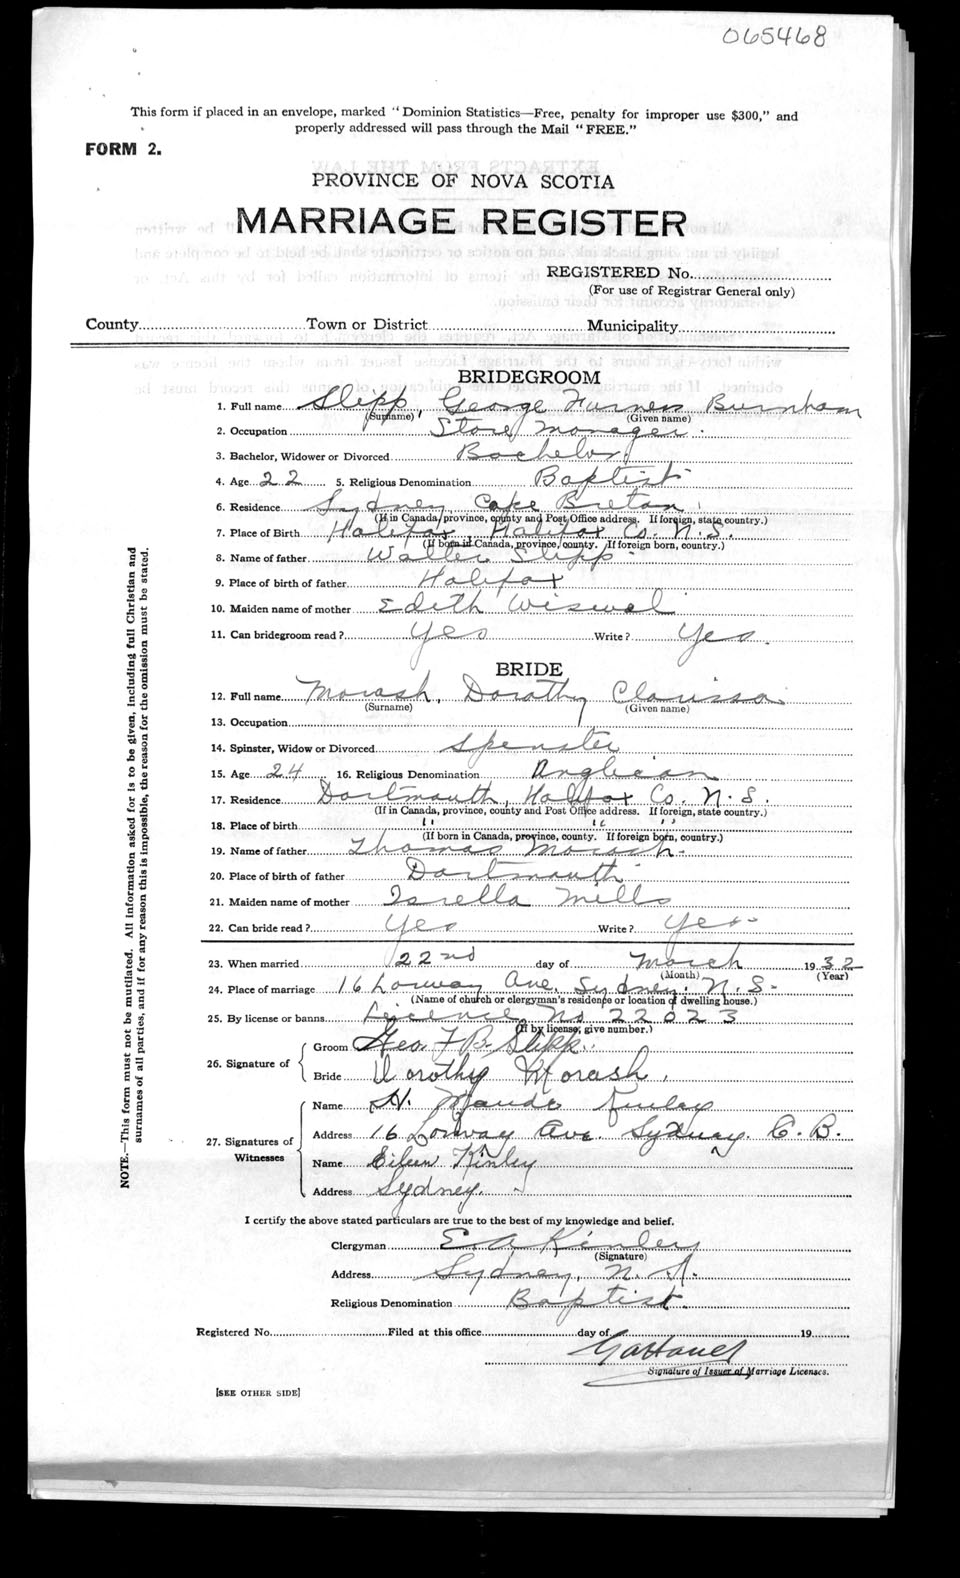 065468
This form if placed in an envelope, marked "Dominion Statistics—Free, penalty for improper use $300," and
properly addressed will pass through the Mail "FREE."
FORM 2.
PROVINCE OF NOVA SCOTIA
MARRIAGE REGISTER
REGISTERED No.
(For use of Registrar General only)
County Town or District Municipality
BRIDEGROOM
1. Full name Slipp, George Furness Burnham
(Surname) (Given name)
2. Occupation Store manager.
3. Bachelor, Widower or Divorced Bachelor
4. Age 22 5. Religious Denomination Baptist
6. Residence Sydney, Cape Breton
(If in Canada, province, county and Post Office address. If foreign, state country.)
7. Place of Birth Halifax Halifax Co. N.S.
(If born in Canada, province, county. If foreign born, country.)
8. Name of father Walter Slipp
9. Place of birth of father Halifax
10. Maiden name of mother Edith Wiswel
11. Can bridegroom read? Yes Write? Yes.
BRIDE
12. Full name Morash, Dorothy Clarissa
(Surname) (Given name)
13. Occupation
14. Spinster, Widow or Divorced Spenster
15. Age 24 16. Religious Denomination Anglican
17. Residence Dartmouth, Halifax Co. N.S.
(If in Canada, province, county and Post Office address. If foreign, state country.)
18. Place of birth " " "
(If born in Canada, province, county. If foreign born, country.)
19. Name of father Thomas Morash.
20. Place of birth of father Dartmouth
21. Maiden name of mother Isrella Mills
22. Can bride read? Yes Write? Yes
23. When married 22nd day of March 1932
(Month) (Year)
24. Place of marriage 16 Lorway Ave. Sydney. N.S.
(Name of church or clergyman's residence or location of dwelling house.)
25. By license or banns Licence No 22023
(If by license, give number.)
26. Signature of
Groom Geo F B. Slipp.
Bride Dorothy Morash.
27. Signatures of Witnesses
Name H. Maude Kinley
Address 16 Lorway Ave. Sydney. C. B.
Name Eileen Kinley
Address Sydney.
I certify the above stated particulars are true to the best of my knowledge and belief.
Clergyman E A Kinley
(Signature)
Address Sydney, N.S.
Religious Denomination Baptist.
Registered No. Filed at this office day of 19
Signature of Issuer of Marriage Licenses.
[SEE OTHER SIDE]
NOTE.—This form must not be mutilated. All information asked for is to be given, including full Christian and
surnames of all parties, and if for any reason this is impossible, the reason for the omission must be stated.